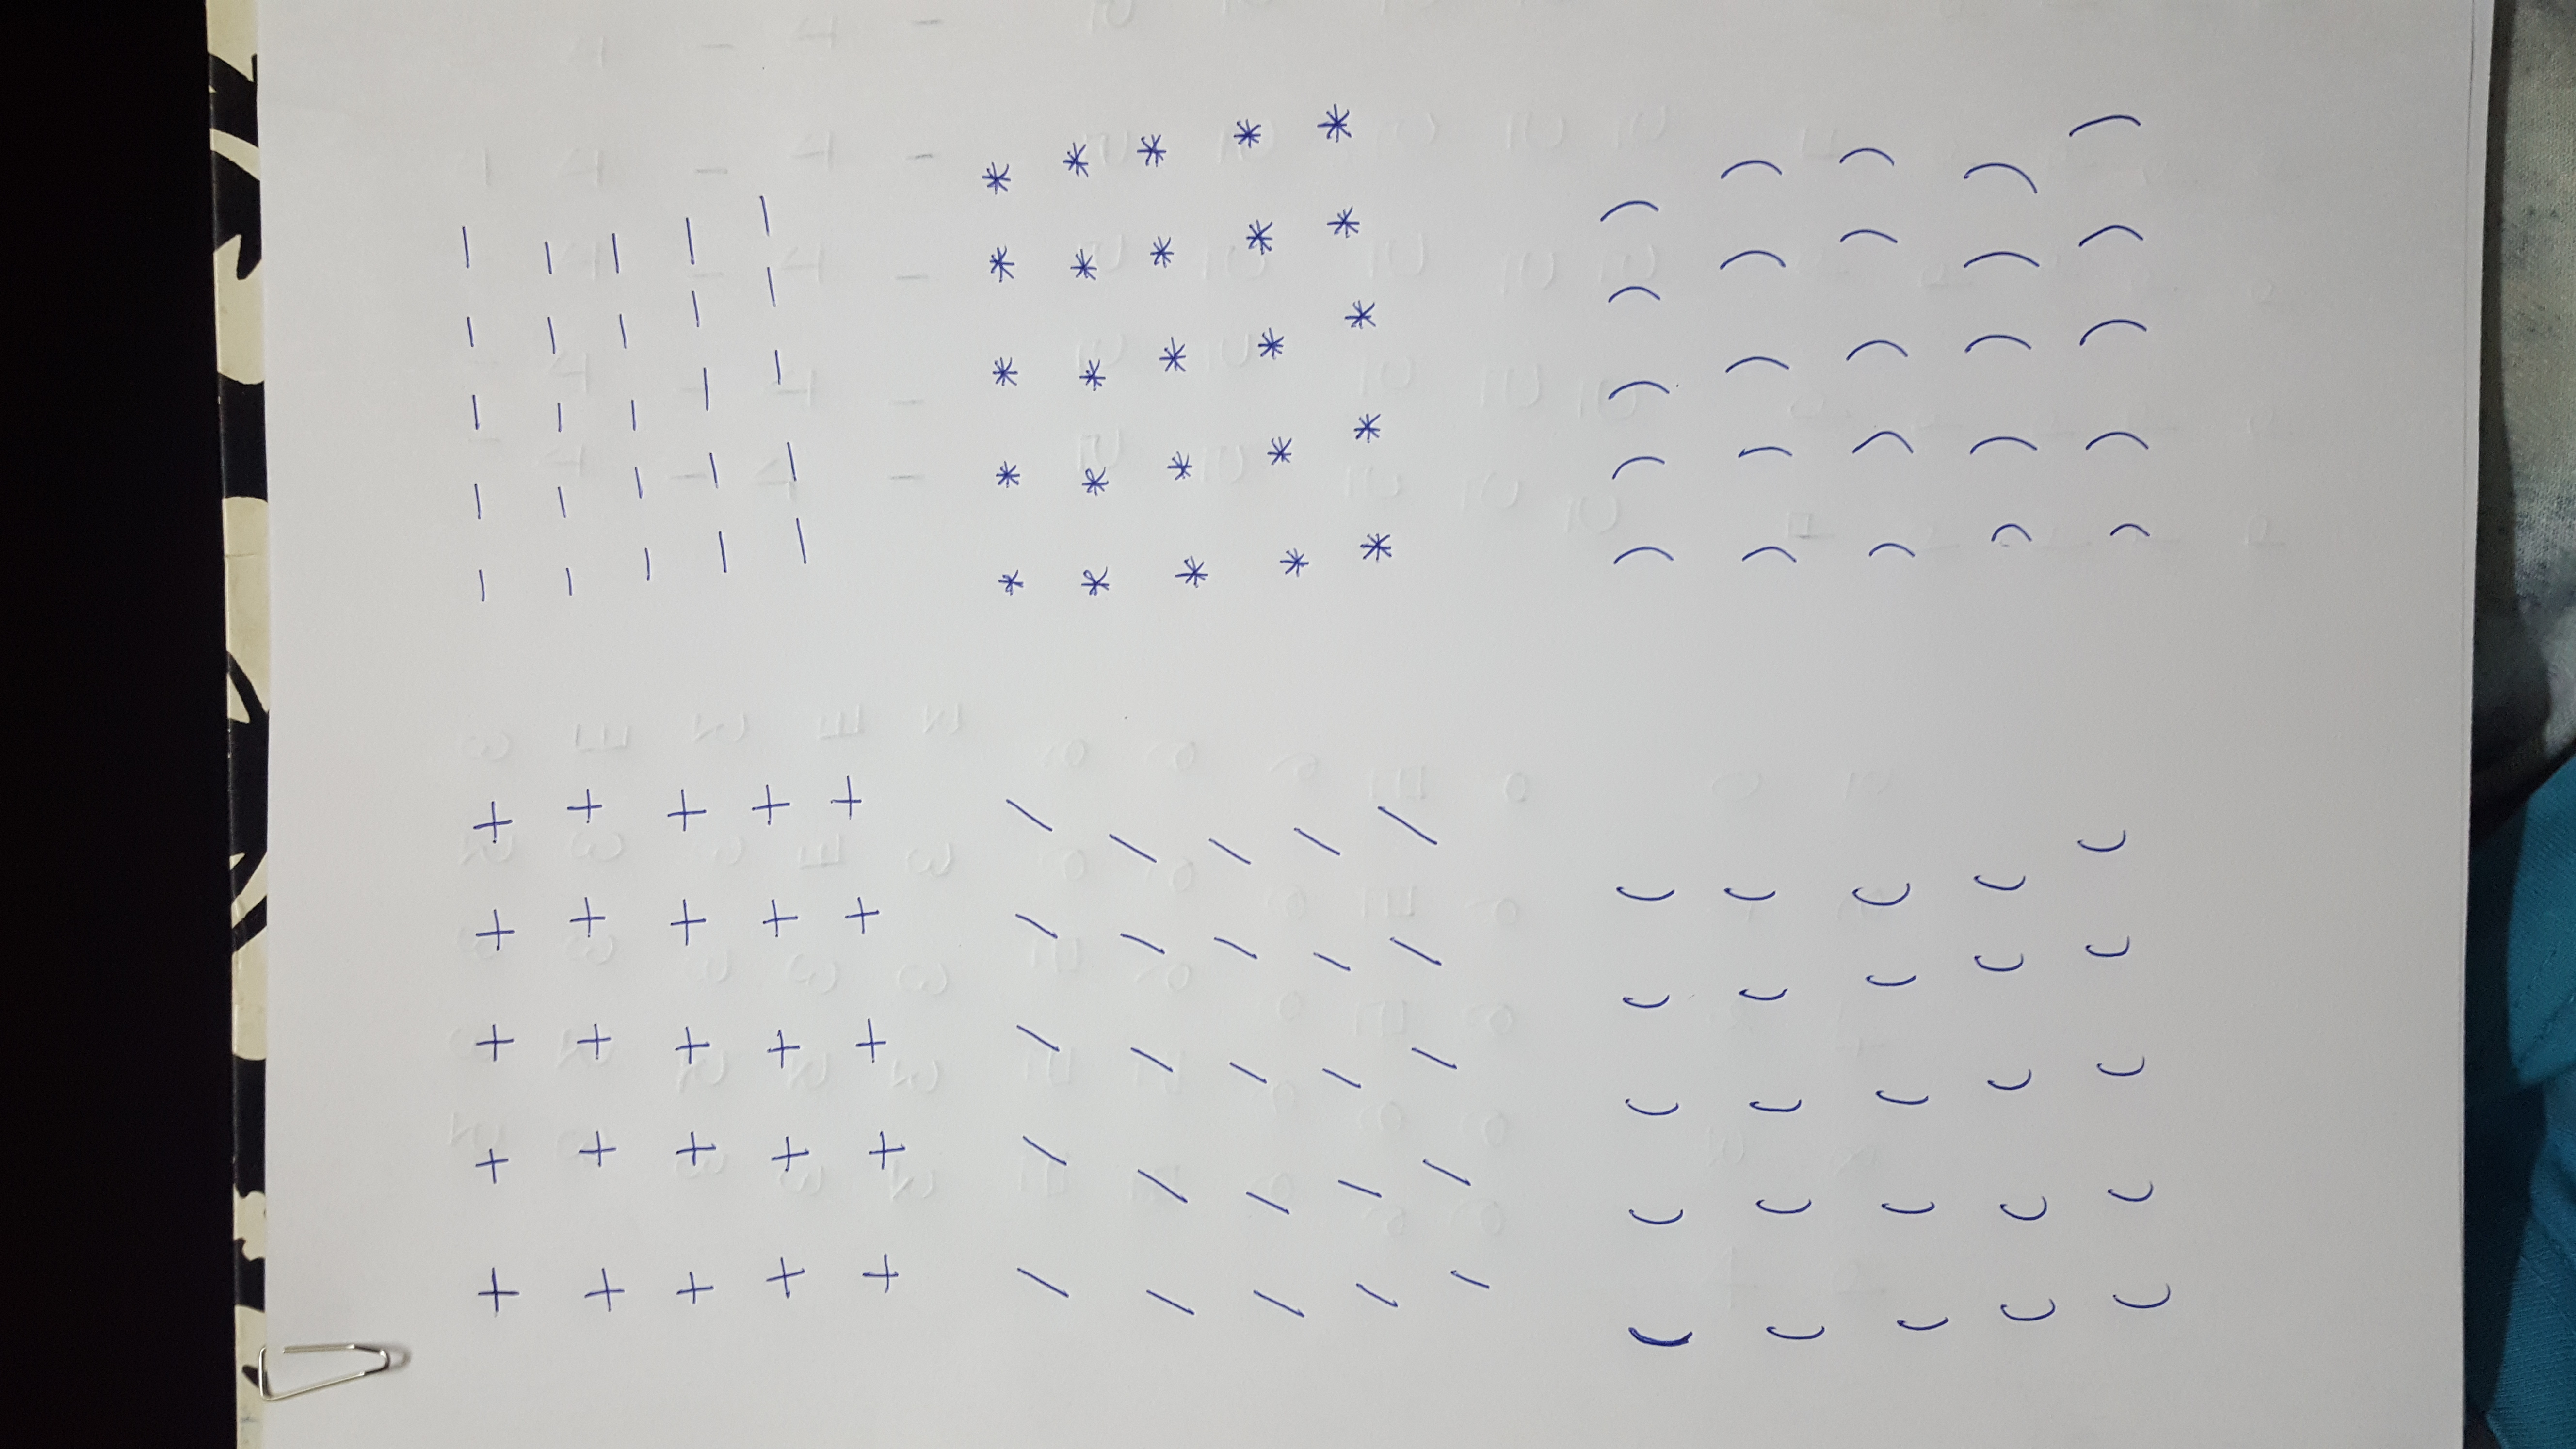 + + + + + - - - - -
+ + + + + - - - - -
+ + + + + - - - - -
+ + + + + - - - - -
+ + + + + - - - - -
/ / / / / * * * * *
/ / / / / * * * * *
/ / / / / * * * * *
/ / / / / * * * * *
/ / / / / * * * * *
( ( ( ( ( ) ) ) ) )
( ( ( ( ( ) ) ) ) )
( ( ( ( ( ) ) ) ) )
( ( ( ( ( ) ) ) ) )
( ( ( ( ( ) ) ) ) )